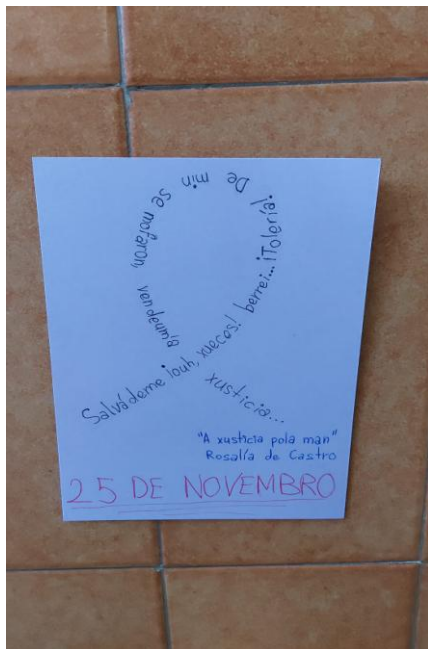 Salvádeme ¡ouh, xueces! berrei... ¡Tolería! De min se mofaron, vendeum'a xusticia...
"A xusticia pola man"
Rosalía de Castro
25 DE NOVEMBRO